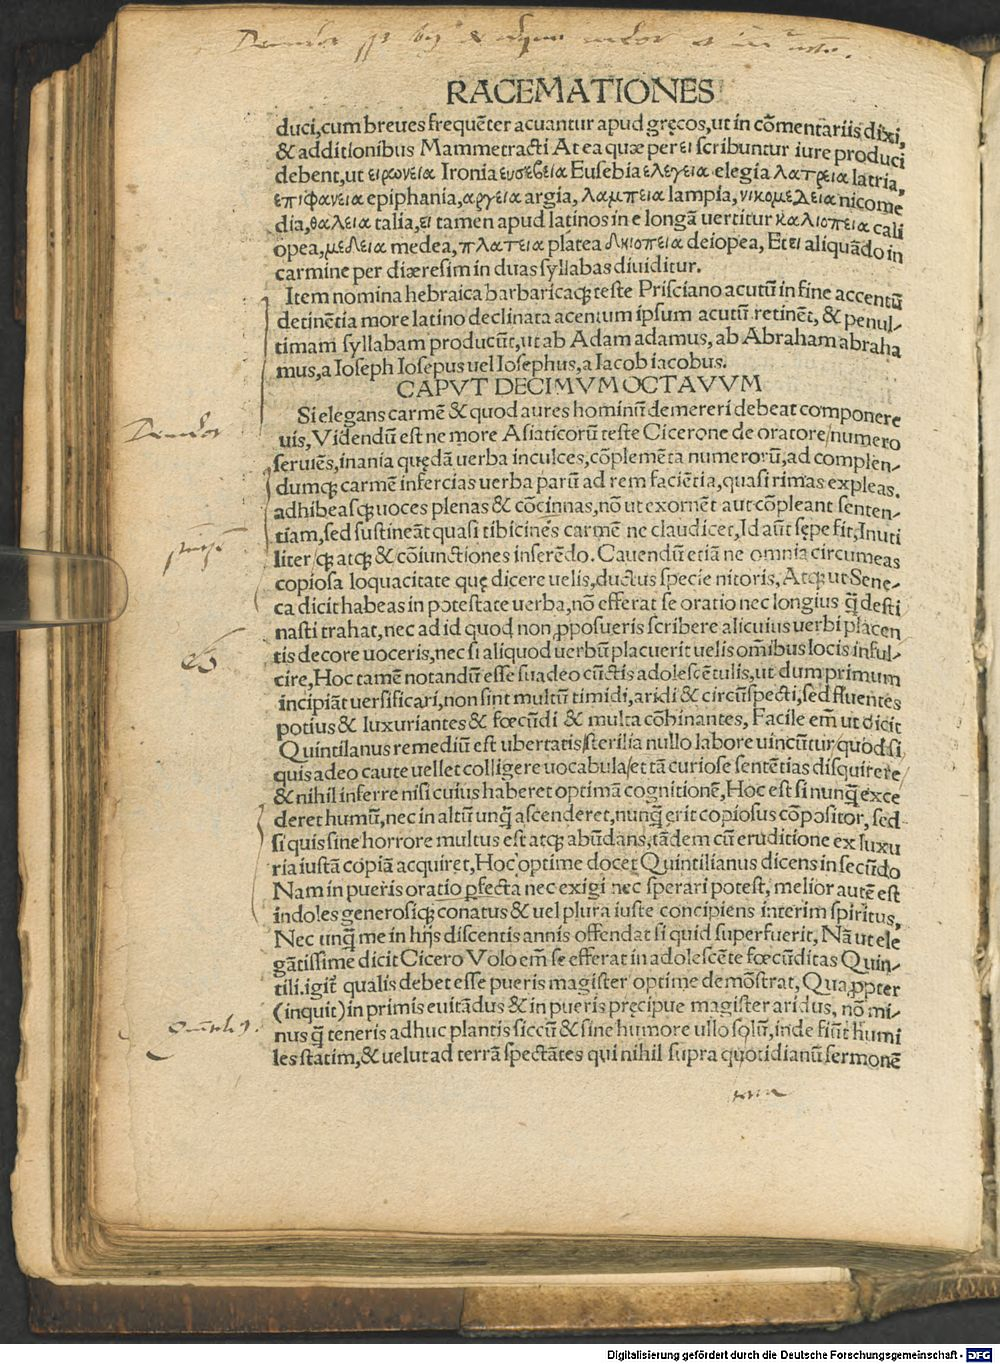 RACEMATIONES
duci,cum breues frequēter acuantur apud gręcos,ut in cōmentariis dixi,
& additionibus Mammetracti At ea quæ per ει scribuntur iure produci
debent,ut ειρωνεια Ironia ευσεβεια Eusebia ελεγεια elegia λατρεια latria,
επιφανεια epiphania,αργεια argia, λαμπεια lampia,νικομεδεια nicome
dia,θαλεια talia,ει tamen apud latinos in e longā uertitur καλιοπεια cali
opea,μεδεια medea,πλατεια platea δκιοπεια deiopea, Et ει aliquādo in
carmine per diæresim in duas syllabas diuiditur.
Item nomina hebraica barbaricaqꝫ teste Prisciano acutū in fine accentū
detinētia more latino declinata acentum ipsum acutū retinēt, & penul-
timam syllabam producūt,ut ab Adam adamus, ab Abraham abraha
mus,a Ioseph Iosepus uel Iosephus,a Iacob iacobus.
CAPVT DECIMVM OCTAVVM
Si elegans carmē & quod aures hominū demereri debeat componere
uis,Videndū est ne more Asiaticorū teste Cicerone de oratore/numero
seruiēs,inania quędā uerba inculces,cōplemēta numerorū,ad complen-
dumqꝫ carmē infercias uerba parū ad rem faciētia,quasi rimas expleas.
adhibeasqꝫ uoces plenas & cōcinnas,nō ut exornēt aut cōpleant senten-
tiam,sed sustineāt quasi tibicines carmē ne claudicet,Id aūt sępe fit,Inuti
liter qꝫ atqꝫ & cōiunctiones inserēdo. Cauendū etiā ne omnia circumeas
copiosa loquacitate quę dicere uelis,ductus specie nitoris, Atqꝫ ut Sene-
ca dicit habeas in potestate uerba,nō efferat se oratio nec longius q̄ desti
nasti trahat,nec ad id quod non ꝓposueris scribere alicuius uerbi placen
tis decore uoceris,nec si aliquod uerbū placuerit uelis om̄ibus locis inful-
cire,Hoc tamē notandū esse suadeo cūctis adolescētulis,ut dum primum
incipiāt uersificari,non sint multū timidi,aridi & circūspecti,sed fluentes
potius & luxuriantes & fœcūdi & multa cōbinantes, Facile em̄ ut dicit
Quintilanus remediū est ubertatis/sterilia nullo labore uincūtur/quod si
quis adeo caute uellet colligere uocabula/et tā curiose sentētias disquirere/
& nihil inferre nisi cuius haberet optimā cognitionē,Hoc est si nunq̄ exce
deret humū,nec in altū unq̄ ascenderet,nunq̄ erit copiosus cōpositor, sed
si quis sine horrore multus est atqꝫ abūdans,tādem cū eruditione ex luxu
ria iustā copiā acquiret,Hoc optime docet Quintilianus dicens in secūdo
Nam in pueris oratio ꝑfecta nec exigi nec sperari potest, melior autē est
indoles generosiqꝫ conatus & uel plura iuste concipiens interim spiritus,
Nec unq̄ me in hijs discentis annis offendat si quid superfuerit, Nā ut ele
gātissime dicit Cicero Volo em̄ se efferat in adolescēte fœcūditas Quin-
tili.igit̄ qualis debet esse pueris magister optime demōstrat, Qua ꝓpter
(inquit)in primis euitādus & in pueris pręcipue magister aridus, nō mi-
nus q̄ teneris adhuc plantis siccū & sine humore ullo solū,inde fiūt humi
les statim,& uelut ad terrā spectātes qui nihil supra quotidianū sermonē
Digitalisierung gefördert durch die Deutsche Forschungsgemeinschaft - DFG